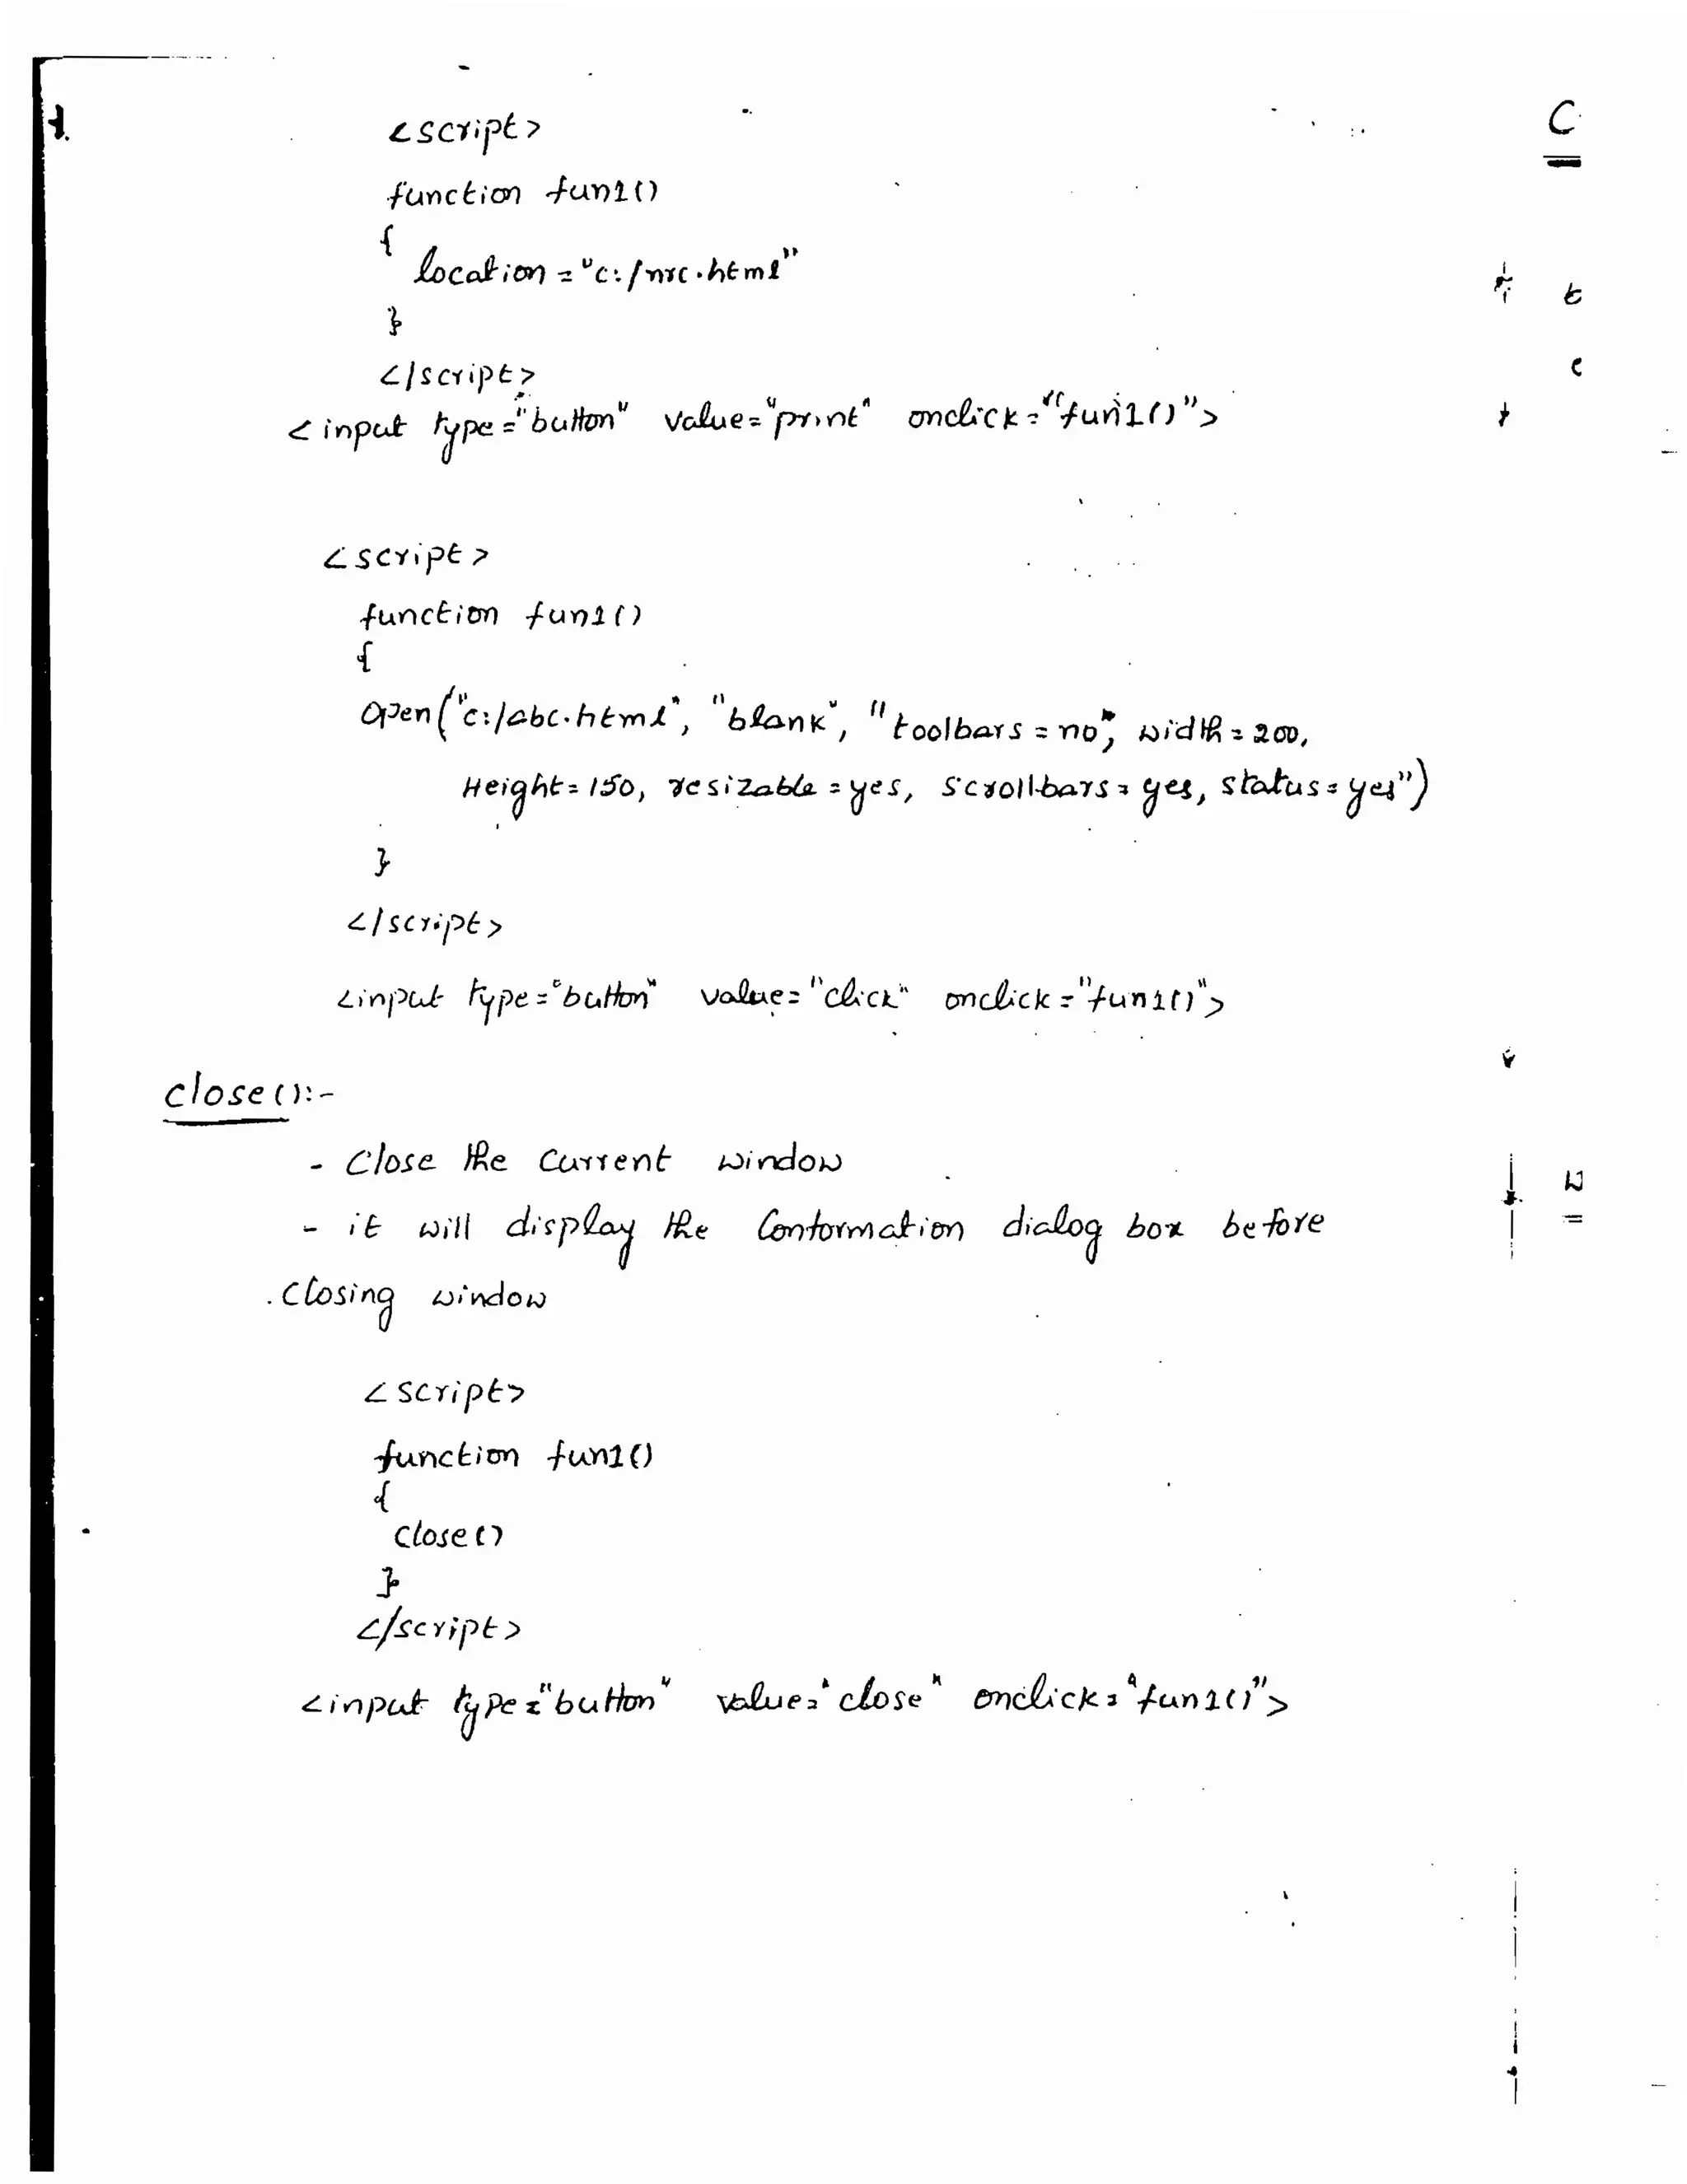 <script>
function fun1()
{
location = "c:/nrc.html"
}
</script>
<input type="button" value="print" onclick="fun1()">
<script>
function fun1()
{
open("c:/abc.html", "blank", "toolbars = no", width = 200,
Height = 150, resizable = yes, scrollbars = yes, status = yes")
}
</script>
<input type="button" value="click" onclick="fun1()">
close():-
- Close the current window
- it will display the Conformation dialog box before
closing window
<script>
function fun1()
{
close()
}
</script>
<input type="button" value="close" onclick="fun1()">
C